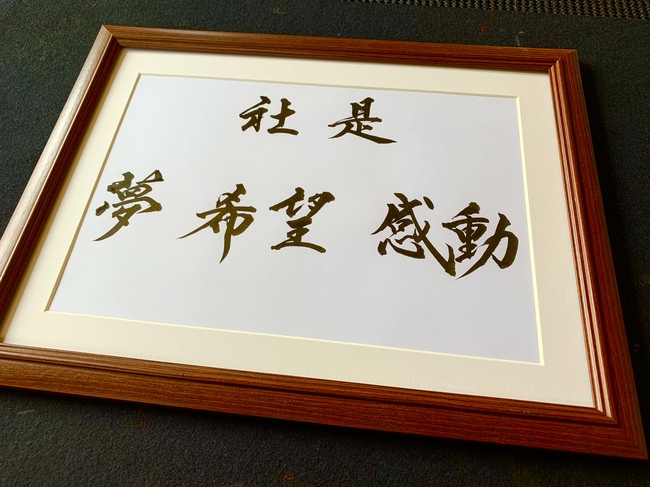 社是
夢 希望 感動